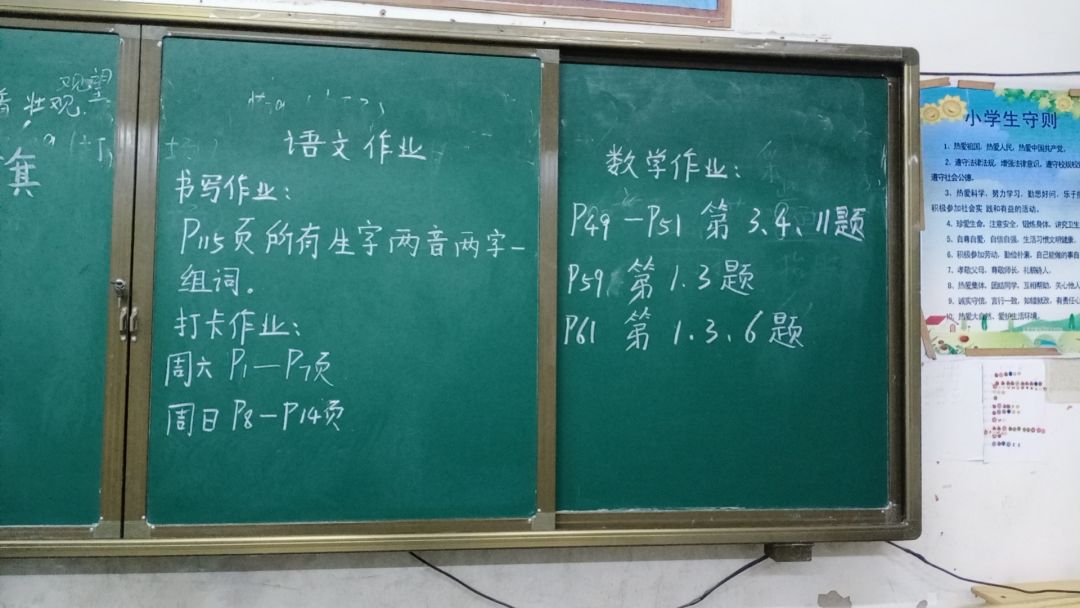 观望
壮观
语文作业
书写作业：
P115页所有生字两音两字一
组词。
打卡作业：
周六 P1—P7页
周日 P8—P14页
数学作业：
P49—P51 第3、4、11题
P59 第1.3题
P61 第1.3、6题
小学生守则
1、热爱祖国，热爱人民，热爱中国共产党。
2、遵守法律法规，增强法律意识，遵守校规校纪
遵守社会公德。
3、热爱科学，努力学习，勤思好问，乐于
积极参加社会实 践和有益的活动。
4、珍爱生命，注意安全，锻炼身体，讲究卫生
5、自尊自爱，自信自强，生活习惯文明健康。
6、积极参加劳动，勤俭朴素，自己能做的事自
7、孝敬父母，尊敬师长，礼貌待人。
8、热爱集体，团结同学，互相帮助，关心他人
9、诚实守信，言行一致，知错就改，有责任心
10、热爱大自然，爱护生活环境。